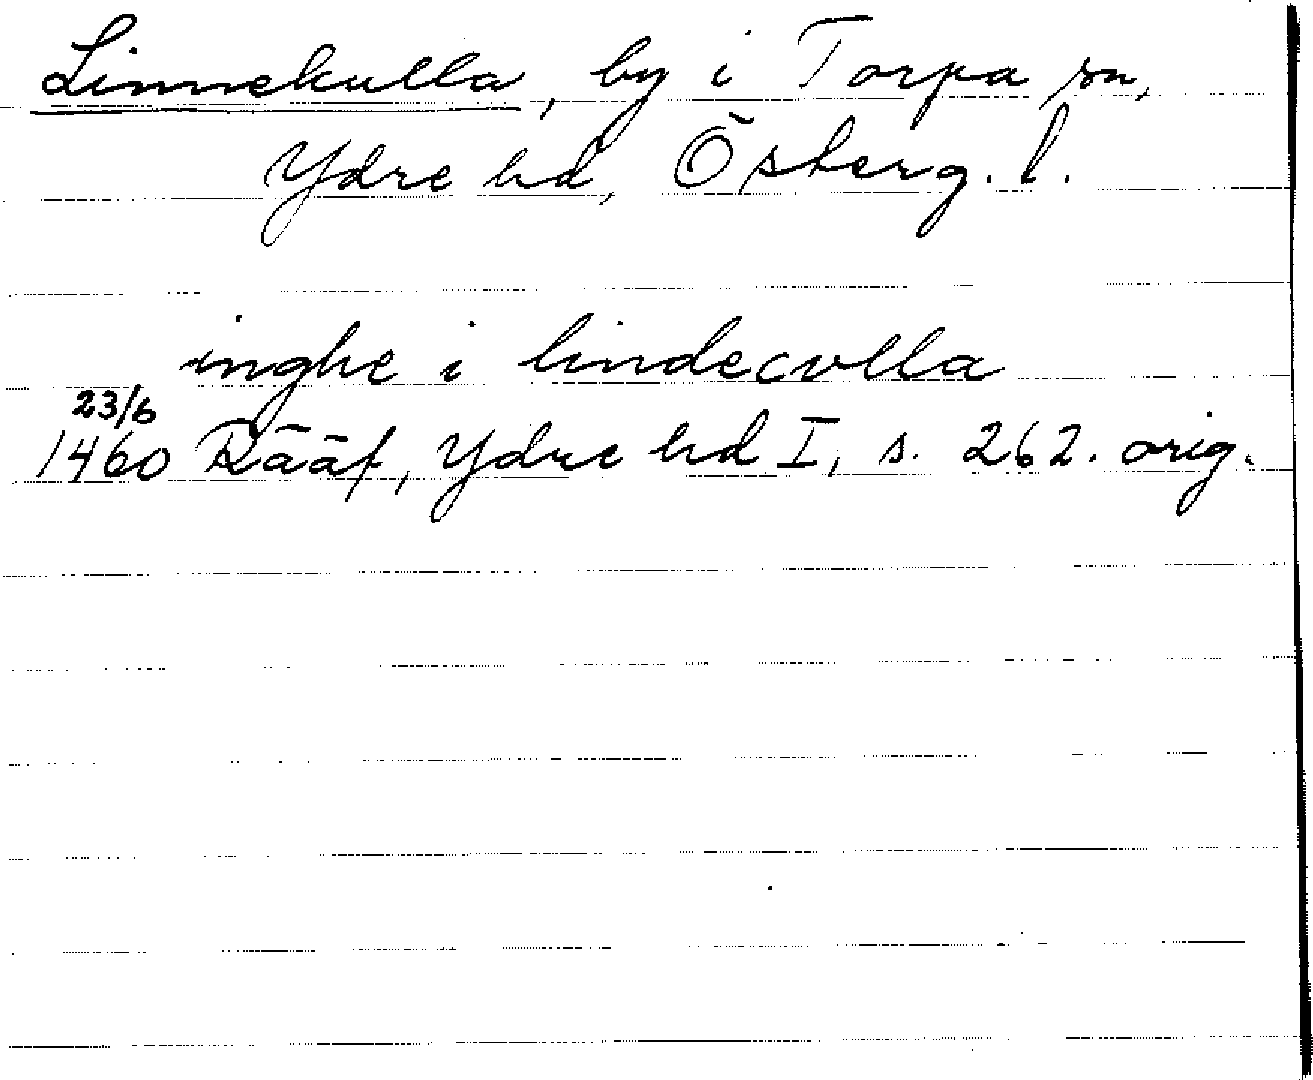 Linnekulla, by i Torpa sn,
Ydre hd, Österg. l.
inghe i lindecvlla
23/6
1460 Rääf, Ydre hd I, s. 262. orig.